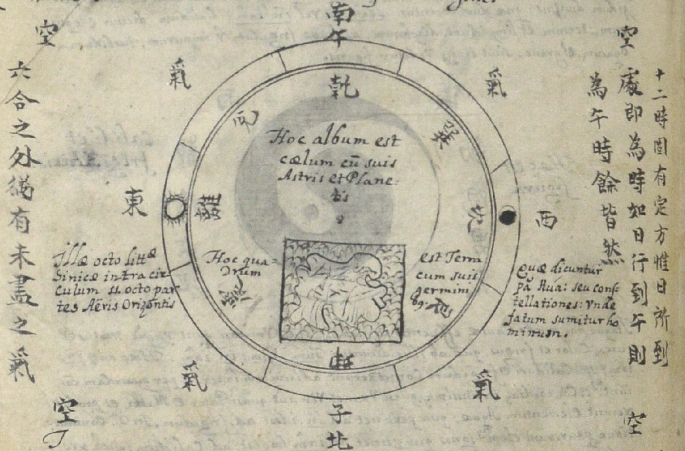 南
午
空
空
氣
氣
六合之外猶有未盡之氣
十二時固有定方惟日所到
處即為時如日行到午則
為午時餘皆然
乾
兌
巽
離
坎
東
西
Hoc album est
cœlum cū suis
Astris et Plane-
tis
Illæ octo littæ
Sinicæ intra cir-
culum st octo par
tes Aëris Orizontis
Hoc qua-
drum
est Terra
cum suis
germini
bq;
Quæ dicuntur
pá Kua: seu cons-
tellationes: Vnde
fatum sumitur ho
minum.
震
艮
坤
氣
氣
子
北
空
空